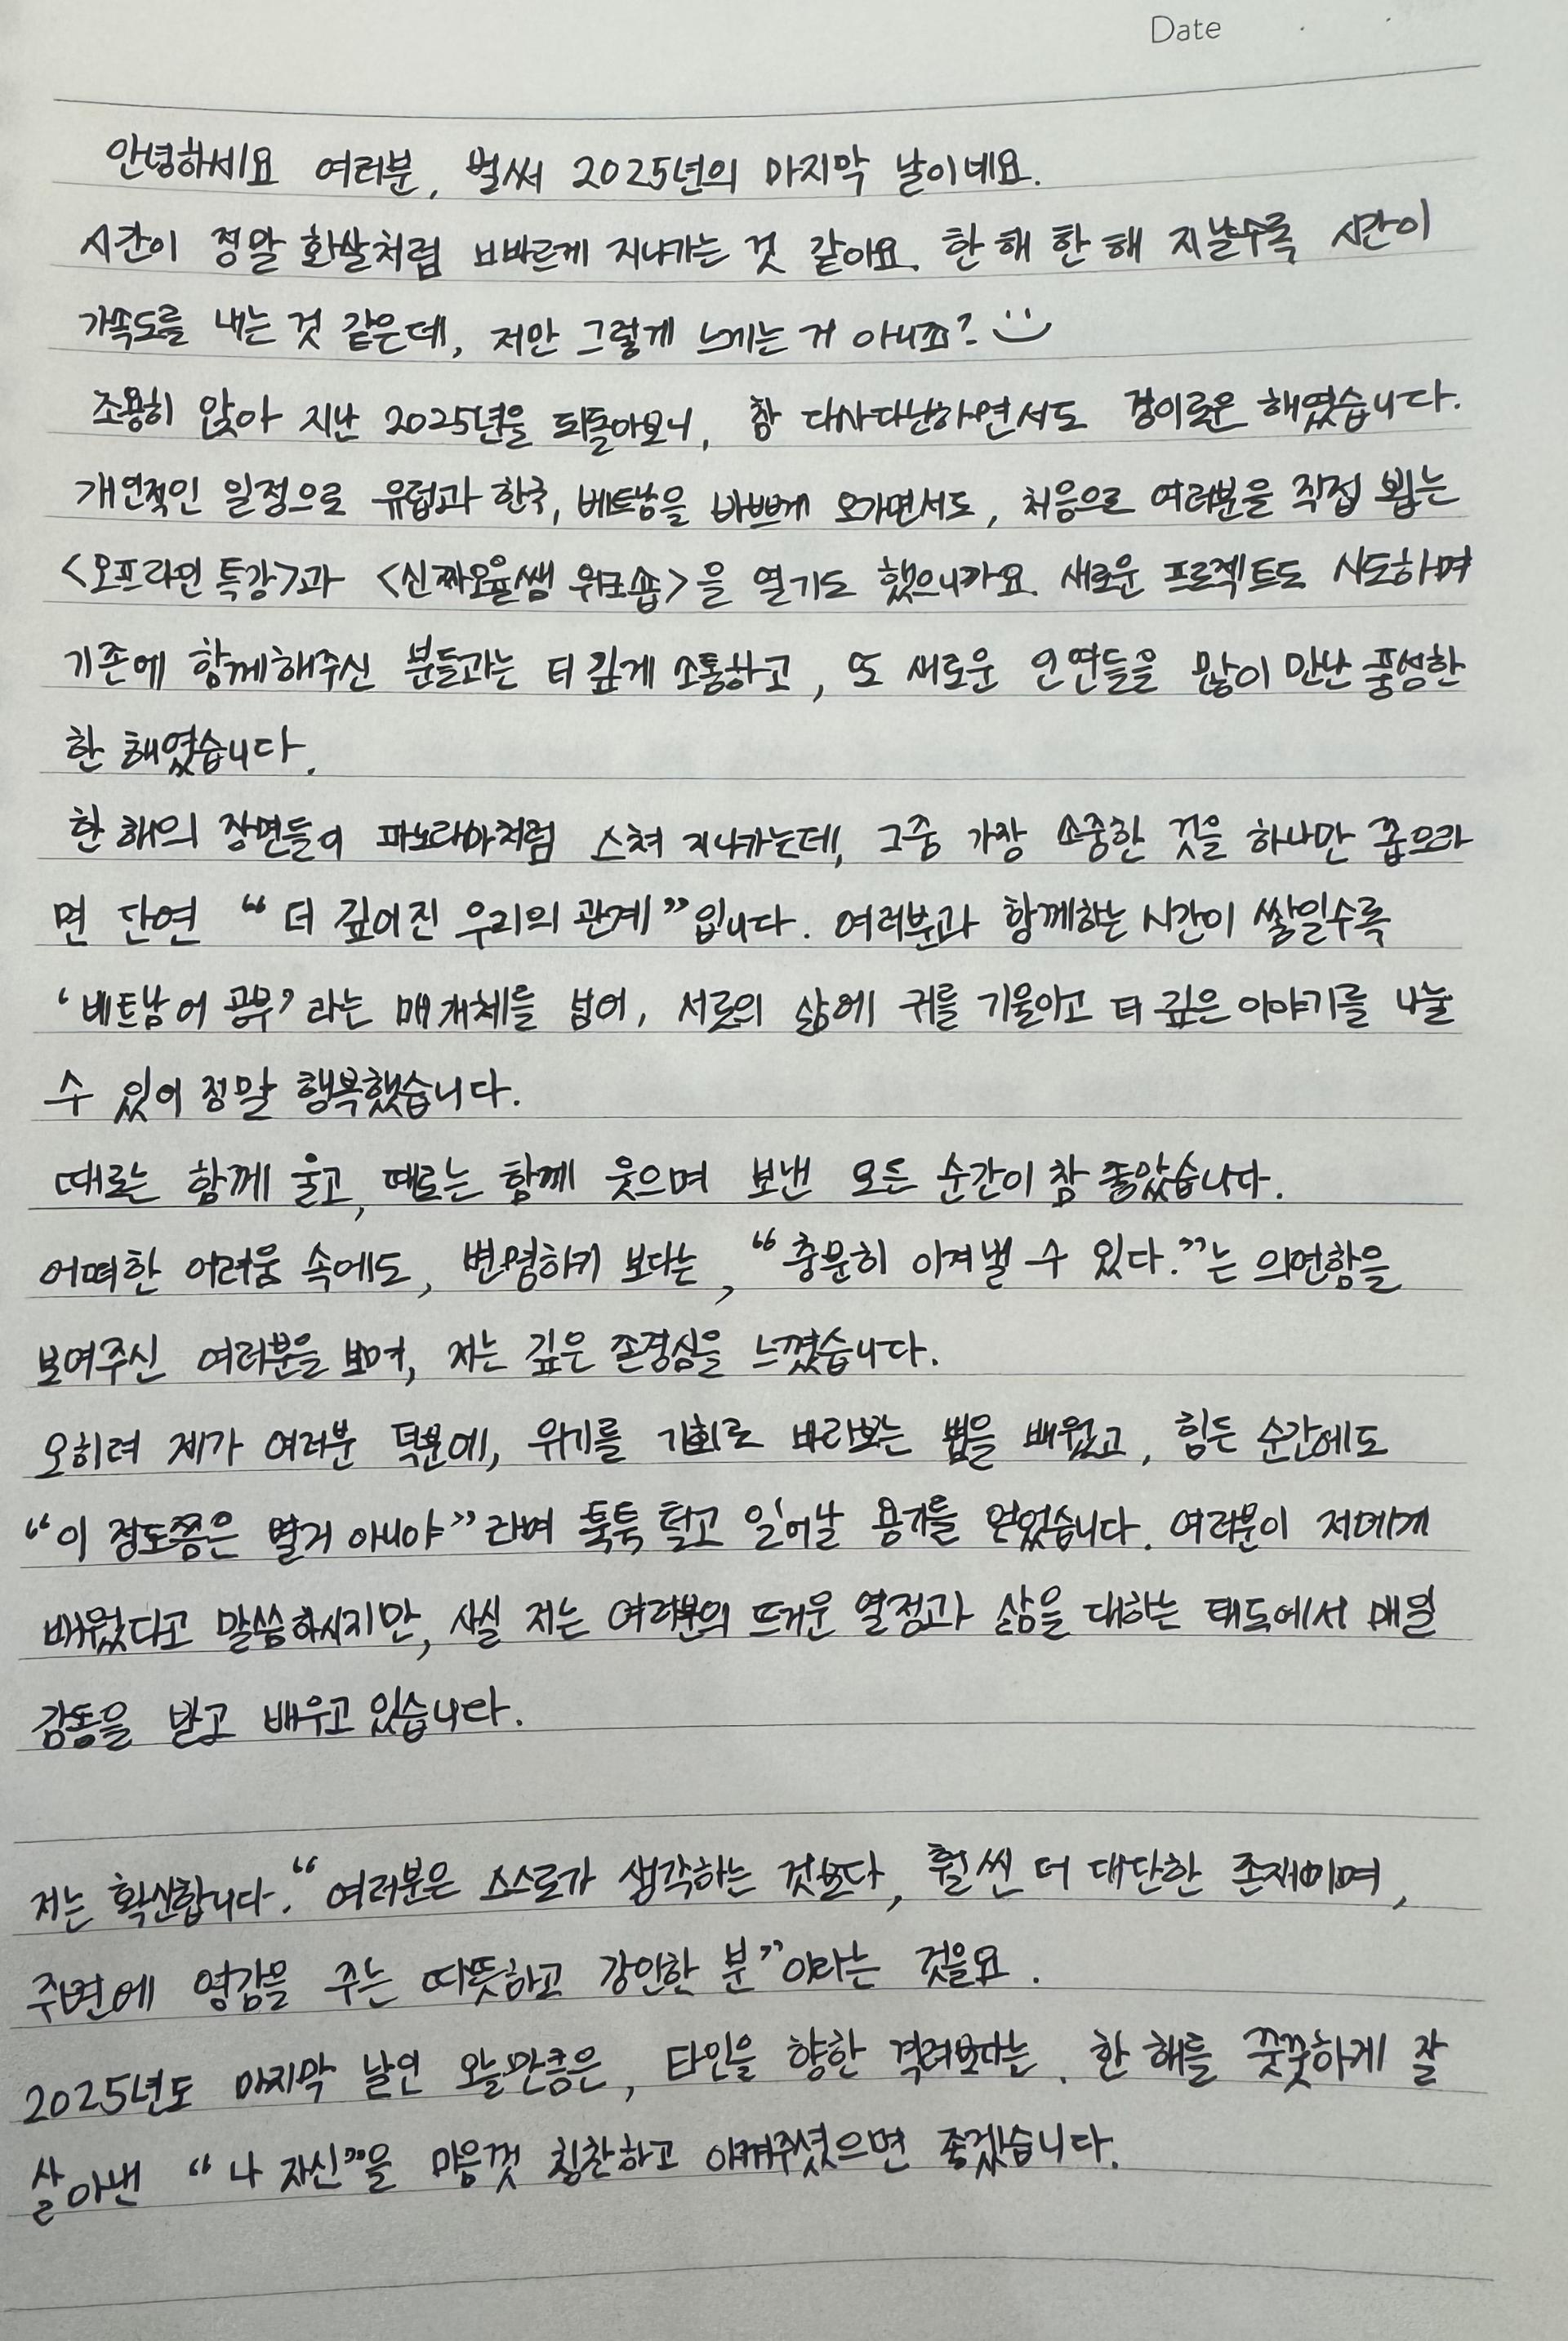 Date
안녕하세요 여러분, 벌써 2025년의 마지막 날이네요.
시간이 정말 화살처럼 빠르게 지나가는 것 같아요. 한 해 한 해 지날수록 시간이
가속도를 내는 것 같은데, 저만 그렇게 느끼는 거 아니죠?
조용히 앉아 지난 2025년을 되돌아보니, 참 다사다난하면서도 경이로운 해였습니다.
개인적인 일정으로 유럽과 한국, 베트남을 바쁘게 오가면서도, 처음으로 여러분을 직접 뵙는
<오프라인 특강>과 <신짜오율쌤 워크숍>을 열기도 했으니까요. 새로운 프로젝트도 시도하며
기존에 함께해주신 분들과는 더 깊게 소통하고, 또 새로운 인연들을 많이 만난 풍성한
한 해였습니다.
한 해의 장면들이 파노라마처럼 스쳐 지나가는데, 그중 가장 소중한 것을 하나만 꼽으라
면 단연 “더 깊어진 우리의 관계”입니다. 여러분과 함께하는 시간이 쌓일수록
‘베트남어 공부’라는 매개체를 넘어, 서로의 삶에 귀를 기울이고 더 깊은 이야기를 나눌
수 있어 정말 행복했습니다.
때로는 함께 울고, 때로는 함께 웃으며 보낸 모든 순간이 참 좋았습니다.
어떠한 어려움 속에도, 변명하기 보다는, “충분히 이겨낼 수 있다.”는 의연함을
보여주신 여러분을 보며, 저는 깊은 존경심을 느꼈습니다.
오히려 제가 여러분 덕분에, 위기를 기회로 바라보는 법을 배웠고, 힘든 순간에도
“이 정도쯤은 별거 아니야”라며 툭툭 털고 일어날 용기를 얻었습니다. 여러분이 저에게
배웠다고 말씀하시지만, 사실 저는 여러분의 뜨거운 열정과 삶을 대하는 태도에서 매일
감동을 받고 배우고 있습니다.
저는 확신합니다. “여러분은 스스로가 생각하는 것보다, 훨씬 더 대단한 존재이며,
주변에 영감을 주는 따뜻하고 강인한 분”이라는 것을요.
2025년도 마지막 날인 오늘만큼은, 타인을 향한 격려보다는, 한 해를 꿋꿋하게 잘
살아낸 “나 자신”을 마음껏 칭찬하고 아껴주셨으면 좋겠습니다.